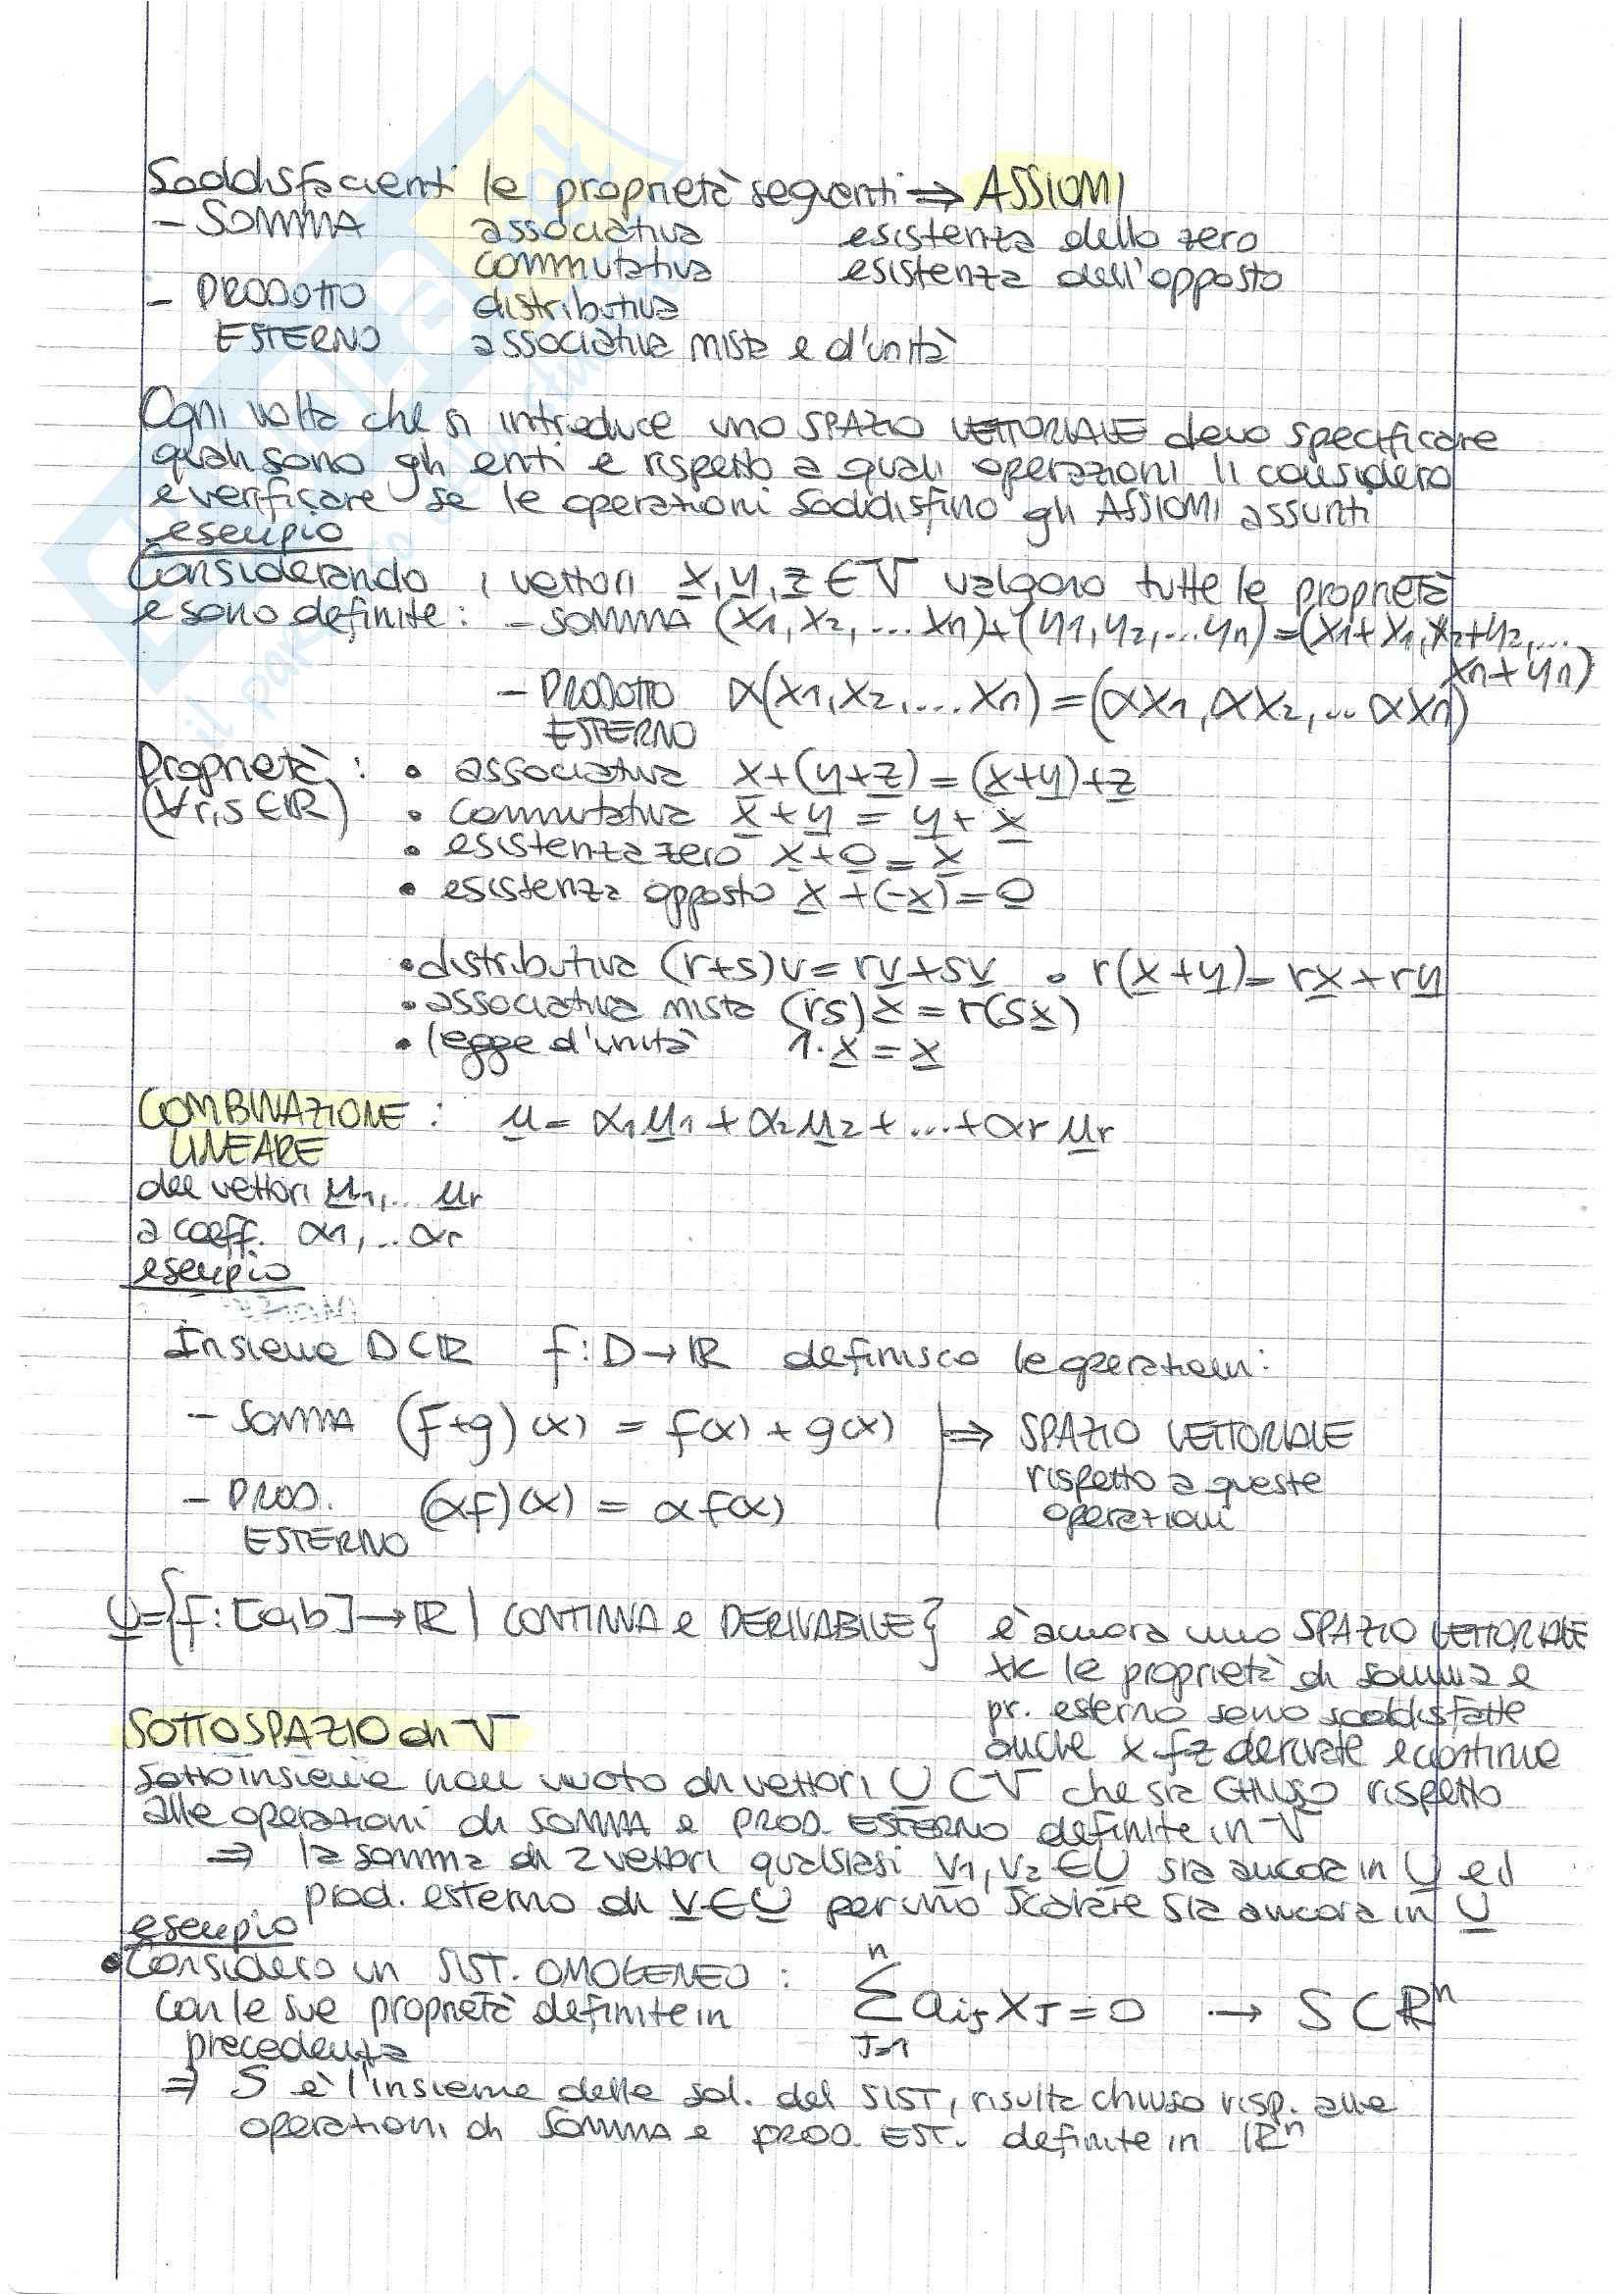 Soddisfacenti le proprietà seguenti ⇒ ASSIOMI
- SOMMA associativa esistenza dello zero
commutativa esistenza dell'opposto
- PRODOTTO distributiva
ESTERNO associativa mista e d'unità
Ogni volta che si introduce uno SPAZIO VETTORIALE devo specificare
quali sono gli enti e rispetto a quali operazioni li considero
e verificare se le operazioni soddisfino gli ASSIOMI assunti
esempio
Considerando i vettori x, y, z ∈ V valgono tutte le proprietà
e sono definite: - SOMMA (x1, x2, ... xn) + (y1, y2, ... yn) = (x1 + x1, x2 + y2, ...
xn + yn)
- PRODOTTO α(x1, x2, ... xn) = (αx1, αx2, ... αxn)
ESTERNO
Proprietà: • associativa x+(y+z) = (x+y)+z
(∀r,s ∈ ℝ) • commutativa x + y = y + x
• esistenza zero x + 0 = x
• esistenza opposto x + (-x) = 0
• distributiva (r+s)v = rv + sv • r(x+y) = rx + ry
• associativa mista (rs)x = r(sx)
• legge d'unità 1·x = x
COMBINAZIONE : u = α1u1 + α2u2 + ... + αrur
LINEARE
dei vettori u1,... ur
a coeff. α1,.. αr
esempio
Insieme D⊂ℝ f: D→ℝ definisco le operazioni:
- SOMMA (f+g)(x) = f(x) + g(x) ⇒ SPAZIO VETTORIALE
rispetto a queste
- PROD. (αf)(x) = αf(x) operazioni
ESTERNO
U={f: [a,b]→ℝ | CONTINUA e DERIVABILE} è ancora uno SPAZIO VETTORIALE
xk le proprietà di somma e
pr. esterno sono soddisfatte
SOTTOSPAZIO di V anche x fz derivate e continue
sottoinsieme non vuoto di vettori U⊂V che sia CHIUSO rispetto
alle operazioni di SOMMA e PROD. ESTERNO definite in V
⇒ la somma di 2 vettori qualsiasi v1, v2 ∈ U sia ancora in U e il
prod. esterno di v∈U per uno scalare sia ancora in U
esempio
• Considero un SIST. OMOGENEO: n
con le sue proprietà definite in Σ aij xJ = 0 → S⊂ℝn
precedenza J=1
⇒ S è l'insieme delle sol. del SIST, risulta chiuso risp. alle
operazioni di SOMMA e PROD. EST. definite in ℝn